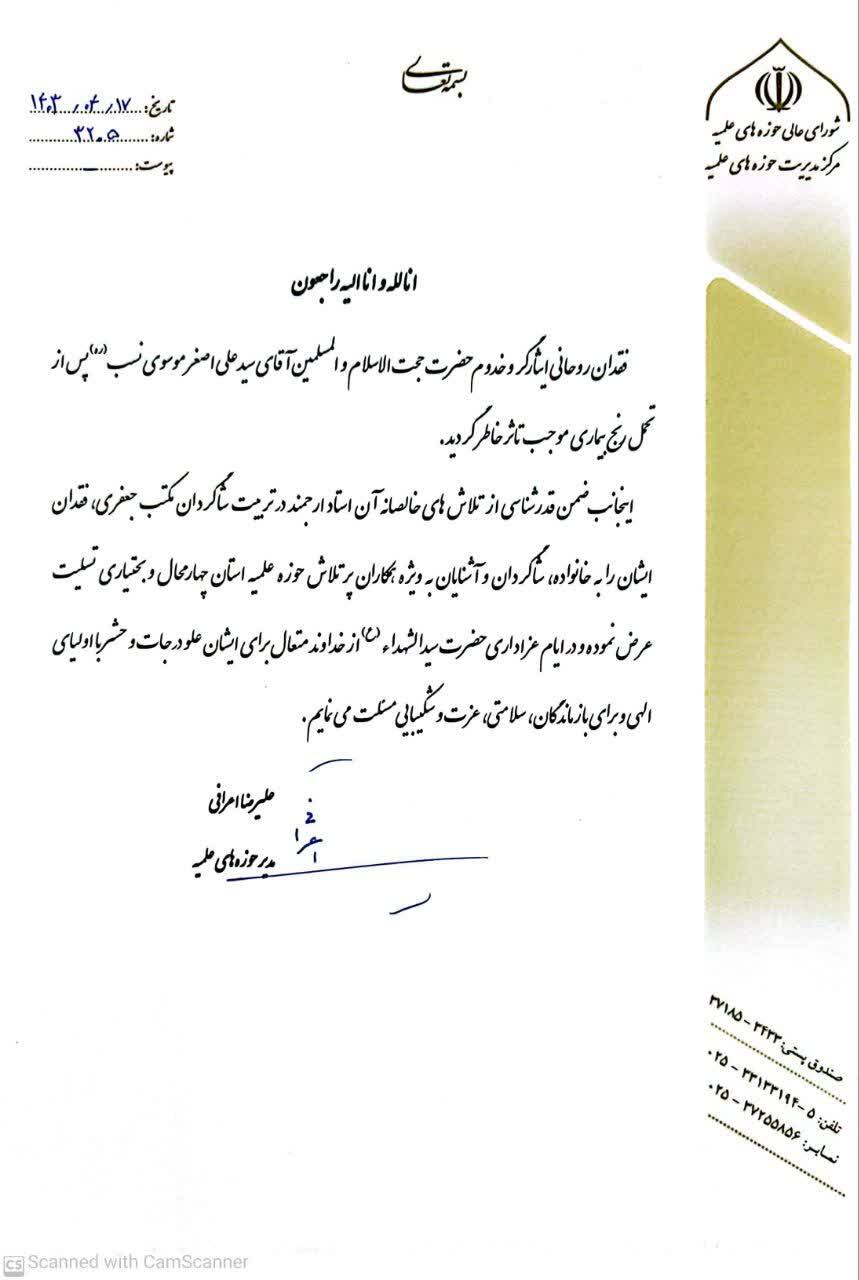 بسمه تعالی
شورای عالی حوزه های علمیه
مرکز مدیریت حوزه های علمیه
تاریخ: ۱۴۰۳/۰۴/۱۷
شماره: ۳۲۰۵
پیوست: ــ
انا لله و انا الیه راجعون
فقدان روحانی ایثارگر و خدوم حضرت حجت الاسلام و المسلمین آقای سید علی اصغر موسوی نسب (ره) پس از
تحمل رنج بیماری موجب تاثر خاطر گردید.
اینجانب ضمن قدرشناسی از تلاش های خالصانه آن استاد ارجمند در تربیت شاگردان مکتب جعفری، فقدان
ایشان را به خانواده، شاگردان و آشنایان به ویژه همکاران پر تلاش حوزه علمیه استان چهارمحال و بختیاری تسلیت
عرض نموده و در ایام عزاداری حضرت سیدالشهداء (ع) از خداوند متعال برای ایشان علو درجات و حشر با اولیای
الهی و برای بازماندگان، سلامتی، عزت و شکیبایی مسئلت می نمایم.
علیرضا اعرافی
مدیر حوزه های علمیه
صندوق پستی: ۳۴۳۳ - ۳۷۱۸۵
تلفن: ۵ - ۳۳۱۳۳۱۹۴ - ۰۲۵
نمابر: ۳۷۲۵۵۸۵۶ - ۰۲۵
CS Scanned with CamScanner